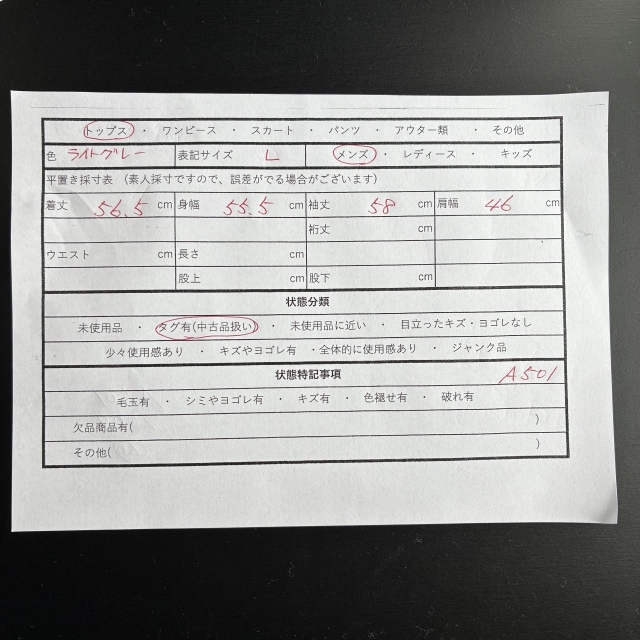 トップス ・ ワンピース ・ スカート ・ パンツ ・ アウター類 ・ その他
色 ライトグレー 表記サイズ L メンズ ・ レディース ・ キッズ
平置き採寸表 (素人採寸ですので、誤差がでる場合がございます)
着丈 56.5 cm 身幅 55.5 cm 袖丈 58 cm 肩幅 46 cm
裄丈 cm
ウエスト cm 長さ cm
股上 cm 股下 cm
状態分類
未使用品 ・ タグ有(中古品扱い) ・ 未使用品に近い ・ 目立ったキズ・ヨゴレなし
少々使用感あり ・ キズやヨゴレ有 ・全体的に使用感あり ・ ジャンク品
状態特記事項 A501
毛玉有 ・ シミやヨゴレ有 ・ キズ有 ・ 色褪せ有 ・ 破れ有
欠品商品有( )
その他( )